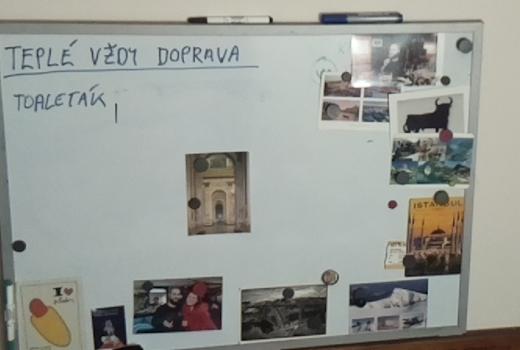 TEPLÉ VŽDY DOPRAVA
TOALETÁK |
ISTANBUL
I ♥